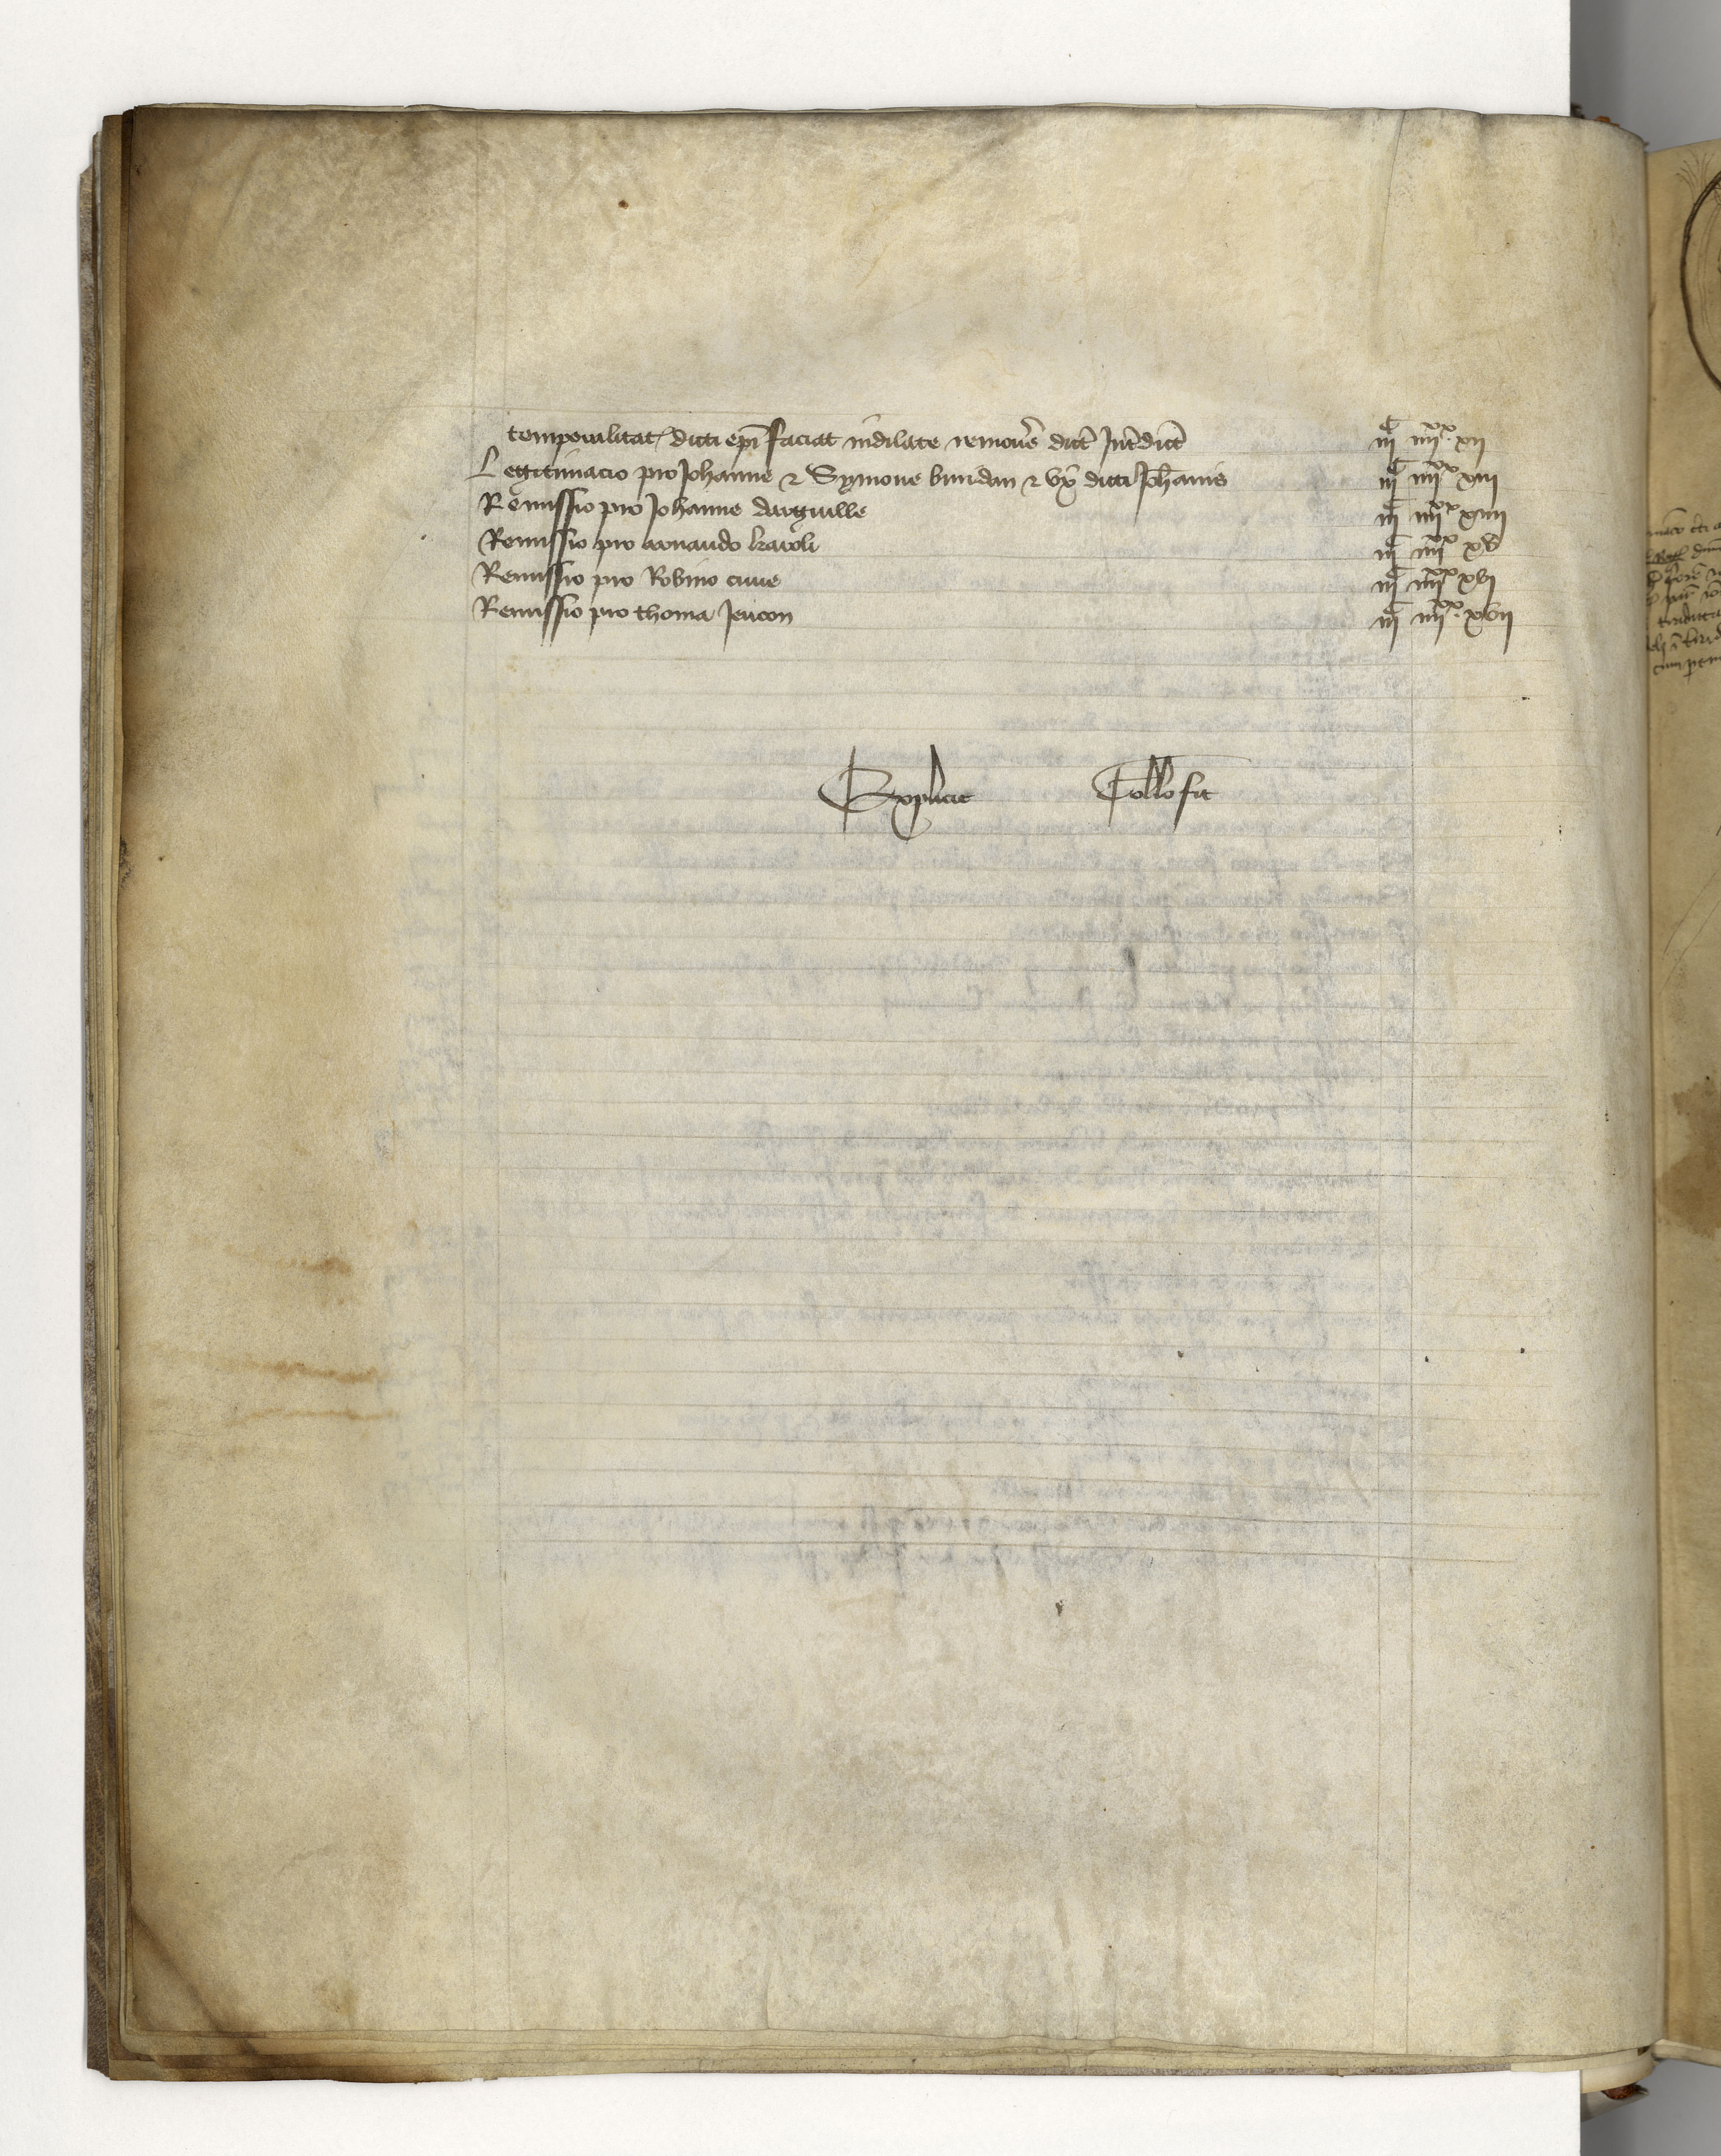 temporalitat dicti epi faciat indilate remove dict Intdict iijC iiijxx xij
Legitimacio pro Johanne & Symone buridan & ux dicti Johanis iijC iiijxx xiij
Remissio pro Johanne daugville iijC iiijxx xiiij
Remissio pro arnaudo karoli iijC iiijxx xv
Remissio pro Robino cuue iijC iiijxx xvj
Remissio pro thoma Jeucon iijC iiijxx xvij
Explicit Collo fit